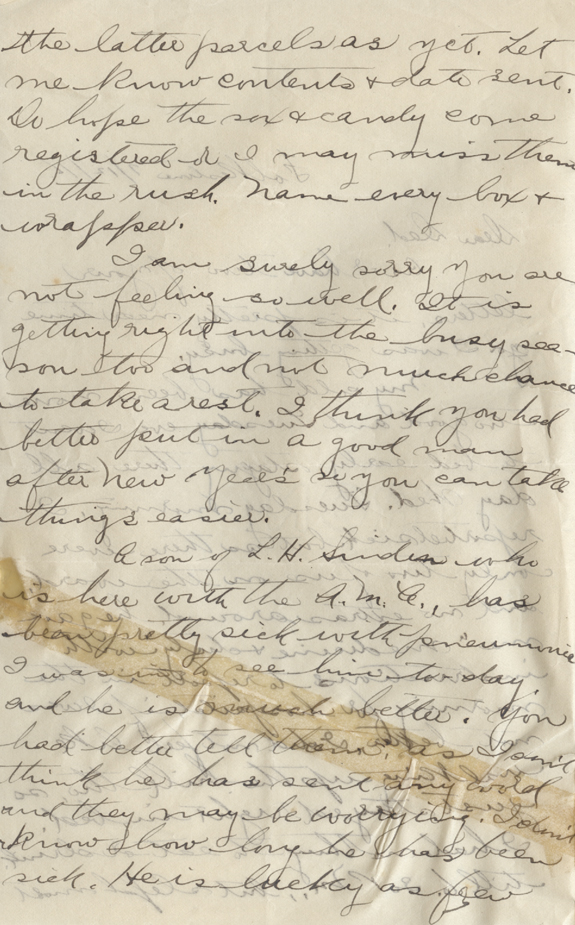 the latter parcels as yet. Let
me know contents & date sent.
Do hope the sox & candy come
registered or I may miss them
in the rush. Name every box &
wrapper.
I am surely sorry you are
not feeling so well. It is
getting right into the busy sea-
son too and not much chance
to take a rest. I think you had
better put in a good man
after New Year's so you can take
things easier.
A son of L. H. who
is here with the A. M. C., has
been pretty sick with pneumonia
I was in to see him to-day
and he is much better. You
had better tell them, as I don't
think he has sent any word
and they may be worrying. I don't
know how long he has been
sick. He is lucky as few